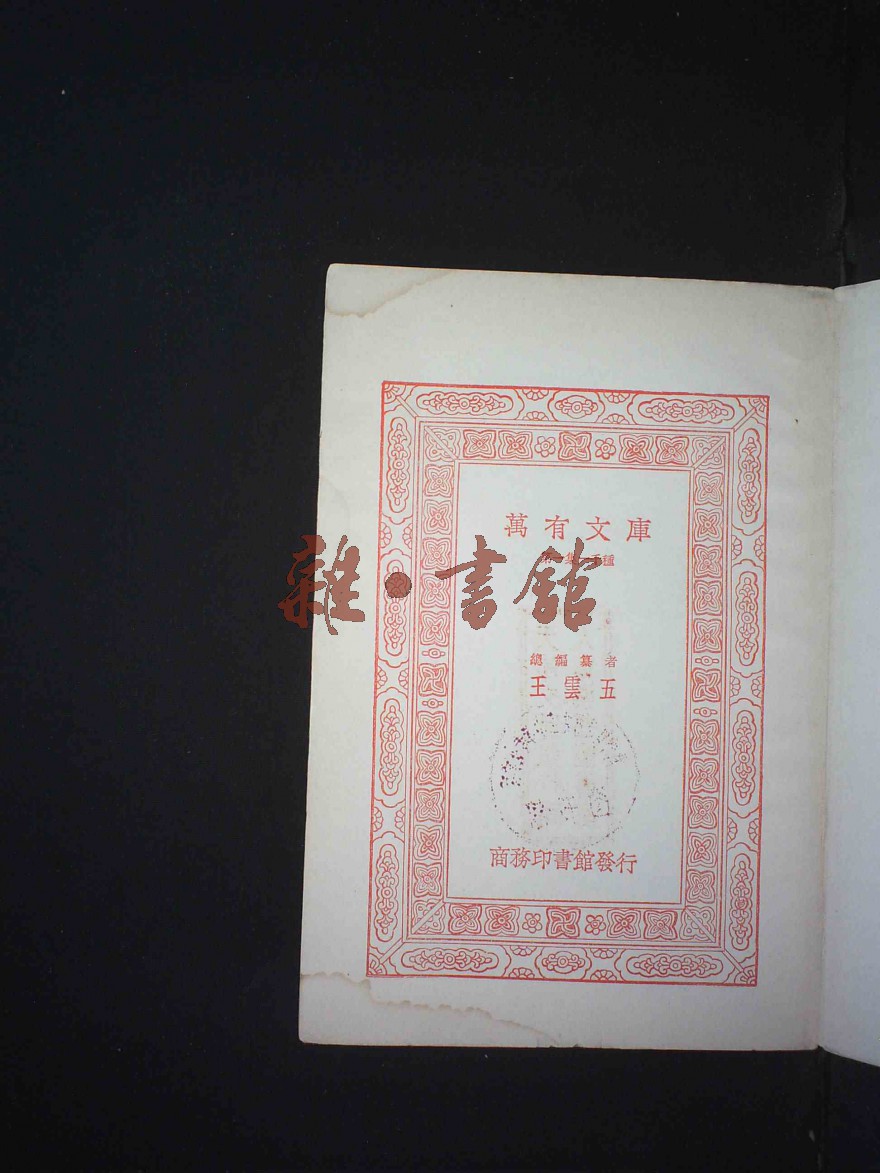 萬有文庫
種
雜·書館
總編纂者
王雲五
商務印書館發行